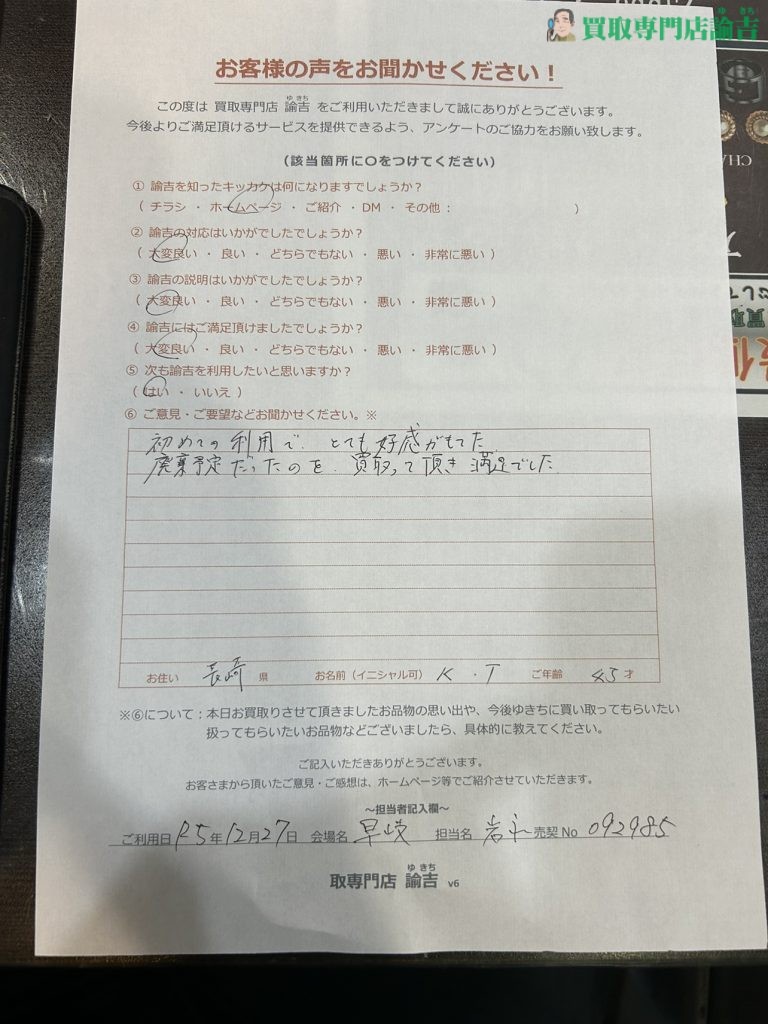 買取専門店諭吉
ゆ きち
お客様の声をお聞かせください！
この度は 買取専門店 諭吉 をご利用いただきまして誠にありがとうございます。
ゆ きち
今後よりご満足頂けるサービスを提供できるよう、アンケートのご協力をお願い致します。
(該当箇所に〇をつけてください)
① 諭吉を知ったキッカケは何になりますでしょうか？
( チラシ ・ ホームページ ・ ご紹介 ・DM ・ その他： )
② 諭吉の対応はいかがでしたでしょうか？
( 大変良い ・ 良い ・ どちらでもない ・ 悪い ・ 非常に悪い )
③ 諭吉の説明はいかがでしたでしょうか？
( 大変良い ・ 良い ・ どちらでもない ・ 悪い ・ 非常に悪い )
④ 諭吉にはご満足頂けましたでしょうか？
( 大変良い ・ 良い ・ どちらでもない ・ 悪い ・ 非常に悪い )
⑤ 次も諭吉を利用したいと思いますか？
( はい ・ いいえ )
⑥ ご意見・ご要望などお聞かせください。※
初めての利用で、とても好感がもてた
廃棄予定だったのを、買取って頂き満足でした
お住い 長崎 県 お名前（イニシャル可） K ・ T ご年齢 45 才
※⑥について：本日お買取りさせて頂きましたお品物の思い出や、今後ゆきちに買い取ってもらいたい
扱ってもらいたいお品物などございましたら、具体的に教えてください。
ご記入いただきありがとうございます。
お客さまから頂いたご意見・ご感想は、ホームページ等でご紹介させていただきます。
～担当者記入欄～
ご利用日 R5年12月27日 会場名 早岐 担当名 岩永 売契 No 092985
ゆ きち
取専門店 諭吉 v6